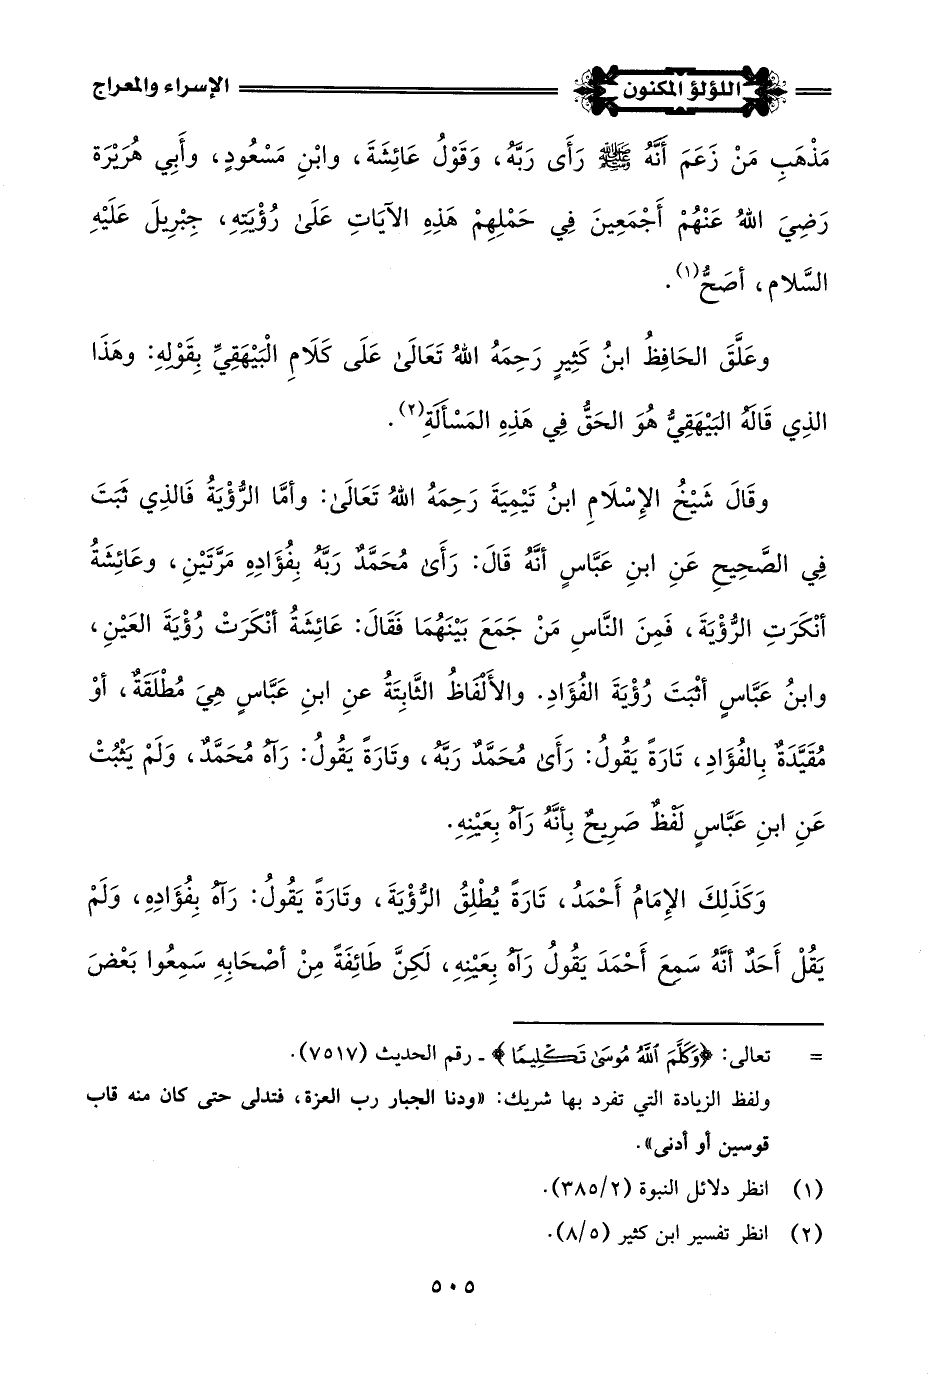 اللؤلؤ المكنون الإسراء والمعراج
مَذْهَبِ مَنْ زَعَمَ أَنَّهُ ﷺ رَأَى رَبَّهُ، وَقَوْلُ عَائِشَةَ، وابْنِ مَسْعُودٍ، وأَبِي هُرَيْرَةَ
رَضِيَ اللهُ عَنْهُمْ أَجْمَعِينَ فِي حَمْلِهِمْ هَذِهِ الآيَاتِ عَلَى رُؤْيَتِهِ، جِبْرِيلَ عَلَيْهِ
السَّلام، أصَحُّ(١).
وعَلَّقَ الحَافِظُ ابنُ كَثِيرٍ رَحِمَهُ اللهُ تَعَالَىٰ عَلَى كَلَامِ الْبَيْهَقِيِّ بِقَوْلِهِ: وهَذَا
الذِي قَالَهُ البَيْهَقِيُّ هُوَ الحَقُّ فِي هَذِهِ المَسْأَلَةِ(٢).
وقَالَ شَيْخُ الإِسْلَامِ ابنُ تَيْمِيَةَ رَحِمَهُ اللهُ تَعَالَىٰ: وأمَّا الرُّؤْيَةُ فَالذِي ثَبَتَ
فِي الصَّحِيحِ عَنِ ابنِ عَبَّاسٍ أنَّهُ قَالَ: رَأَىٰ مُحَمَّدٌ رَبَّهُ بِفُؤَادِهِ مَرَّتَيْنِ، وعَائِشَةُ
أنْكَرَتِ الرُّؤْيَةَ، فَمِنَ النَّاسِ مَنْ جَمَعَ بَيْنَهُمَا فَقَالَ: عَائِشَةُ أنْكَرَتْ رُؤْيَةَ العَيْنِ،
وابنُ عَبَّاسٍ أثْبَتَ رُؤْيَةَ الفُؤَادِ. والأَلْفَاظُ الثَّابِتَةُ عنِ ابنِ عَبَّاسٍ هِيَ مُطْلَقَةٌ، أوْ
مُقَيَّدَةٌ بِالفُؤَادِ، تَارَةً يَقُولُ: رَأَىٰ مُحَمَّدٌ رَبَّهُ، وتَارَةً يَقُولُ: رَآهُ مُحَمَّدٌ، وَلَمْ يَثْبُتْ
عَنِ ابنِ عَبَّاسٍ لَفْظٌ صَرِيحٌ بِأنَّهُ رَآهُ بِعَيْنِهِ.
وَكَذَلِكَ الإِمَامُ أَحْمَدُ، تَارَةً يُطْلِقُ الرُّؤْيَةَ، وتَارَةً يَقُولُ: رَآهُ بِفُؤَادِهِ، وَلَمْ
يَقُلْ أَحَدٌ أنَّهُ سَمِعَ أَحْمَدَ يَقُولُ رَآهُ بِعَيْنِهِ، لَكِنَّ طَائِفَةً مِنْ أصْحَابِهِ سَمِعُوا بَعْضَ
= تعالى: ﴿وَكَلَّمَ ٱللَّهُ مُوسَىٰ تَكْلِيمًا﴾ ـ رقم الحديث (٧٥١٧).
ولفظ الزيادة التي تفرد بها شريك: «ودنا الجبار رب العزة، فتدلى حتى كان منه قاب
قوسين أو أدنى».
(١) انظر دلائل النبوة (٣٨٥/٢).
(٢) انظر تفسير ابن كثير (٨/٥).
٥٠٥